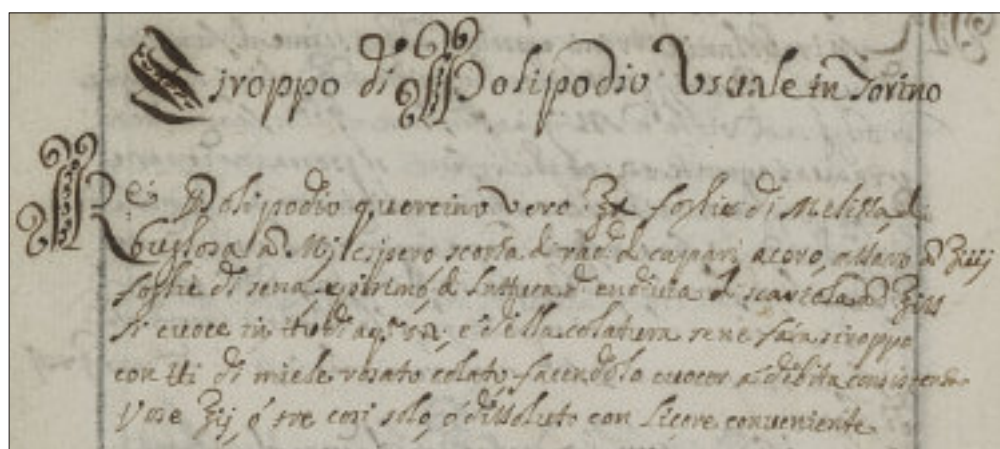 Siroppo di Polipodio Usuale in Torino
Re: Polipodio quercino vero ℥x foglie di Melissa di
buglosa añ Mj Cipero scorza di rad: di capari acoro, añ ℥iij
foglie di sena epitimo, di di endivia di scariola añ
si cuoce in aq: e della colatura se ne fara siroppo
con di miele rosato colato facendolo cuocer a debita consistenza
Dose ℥ij, ó tre cosi solo, ó dissoluto con licore conveniente